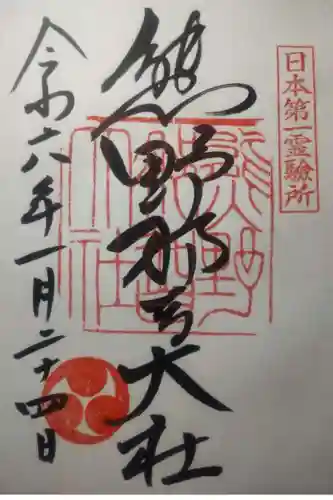 日本第一霊験所
熊野那智大社
令和六年一月二十四日